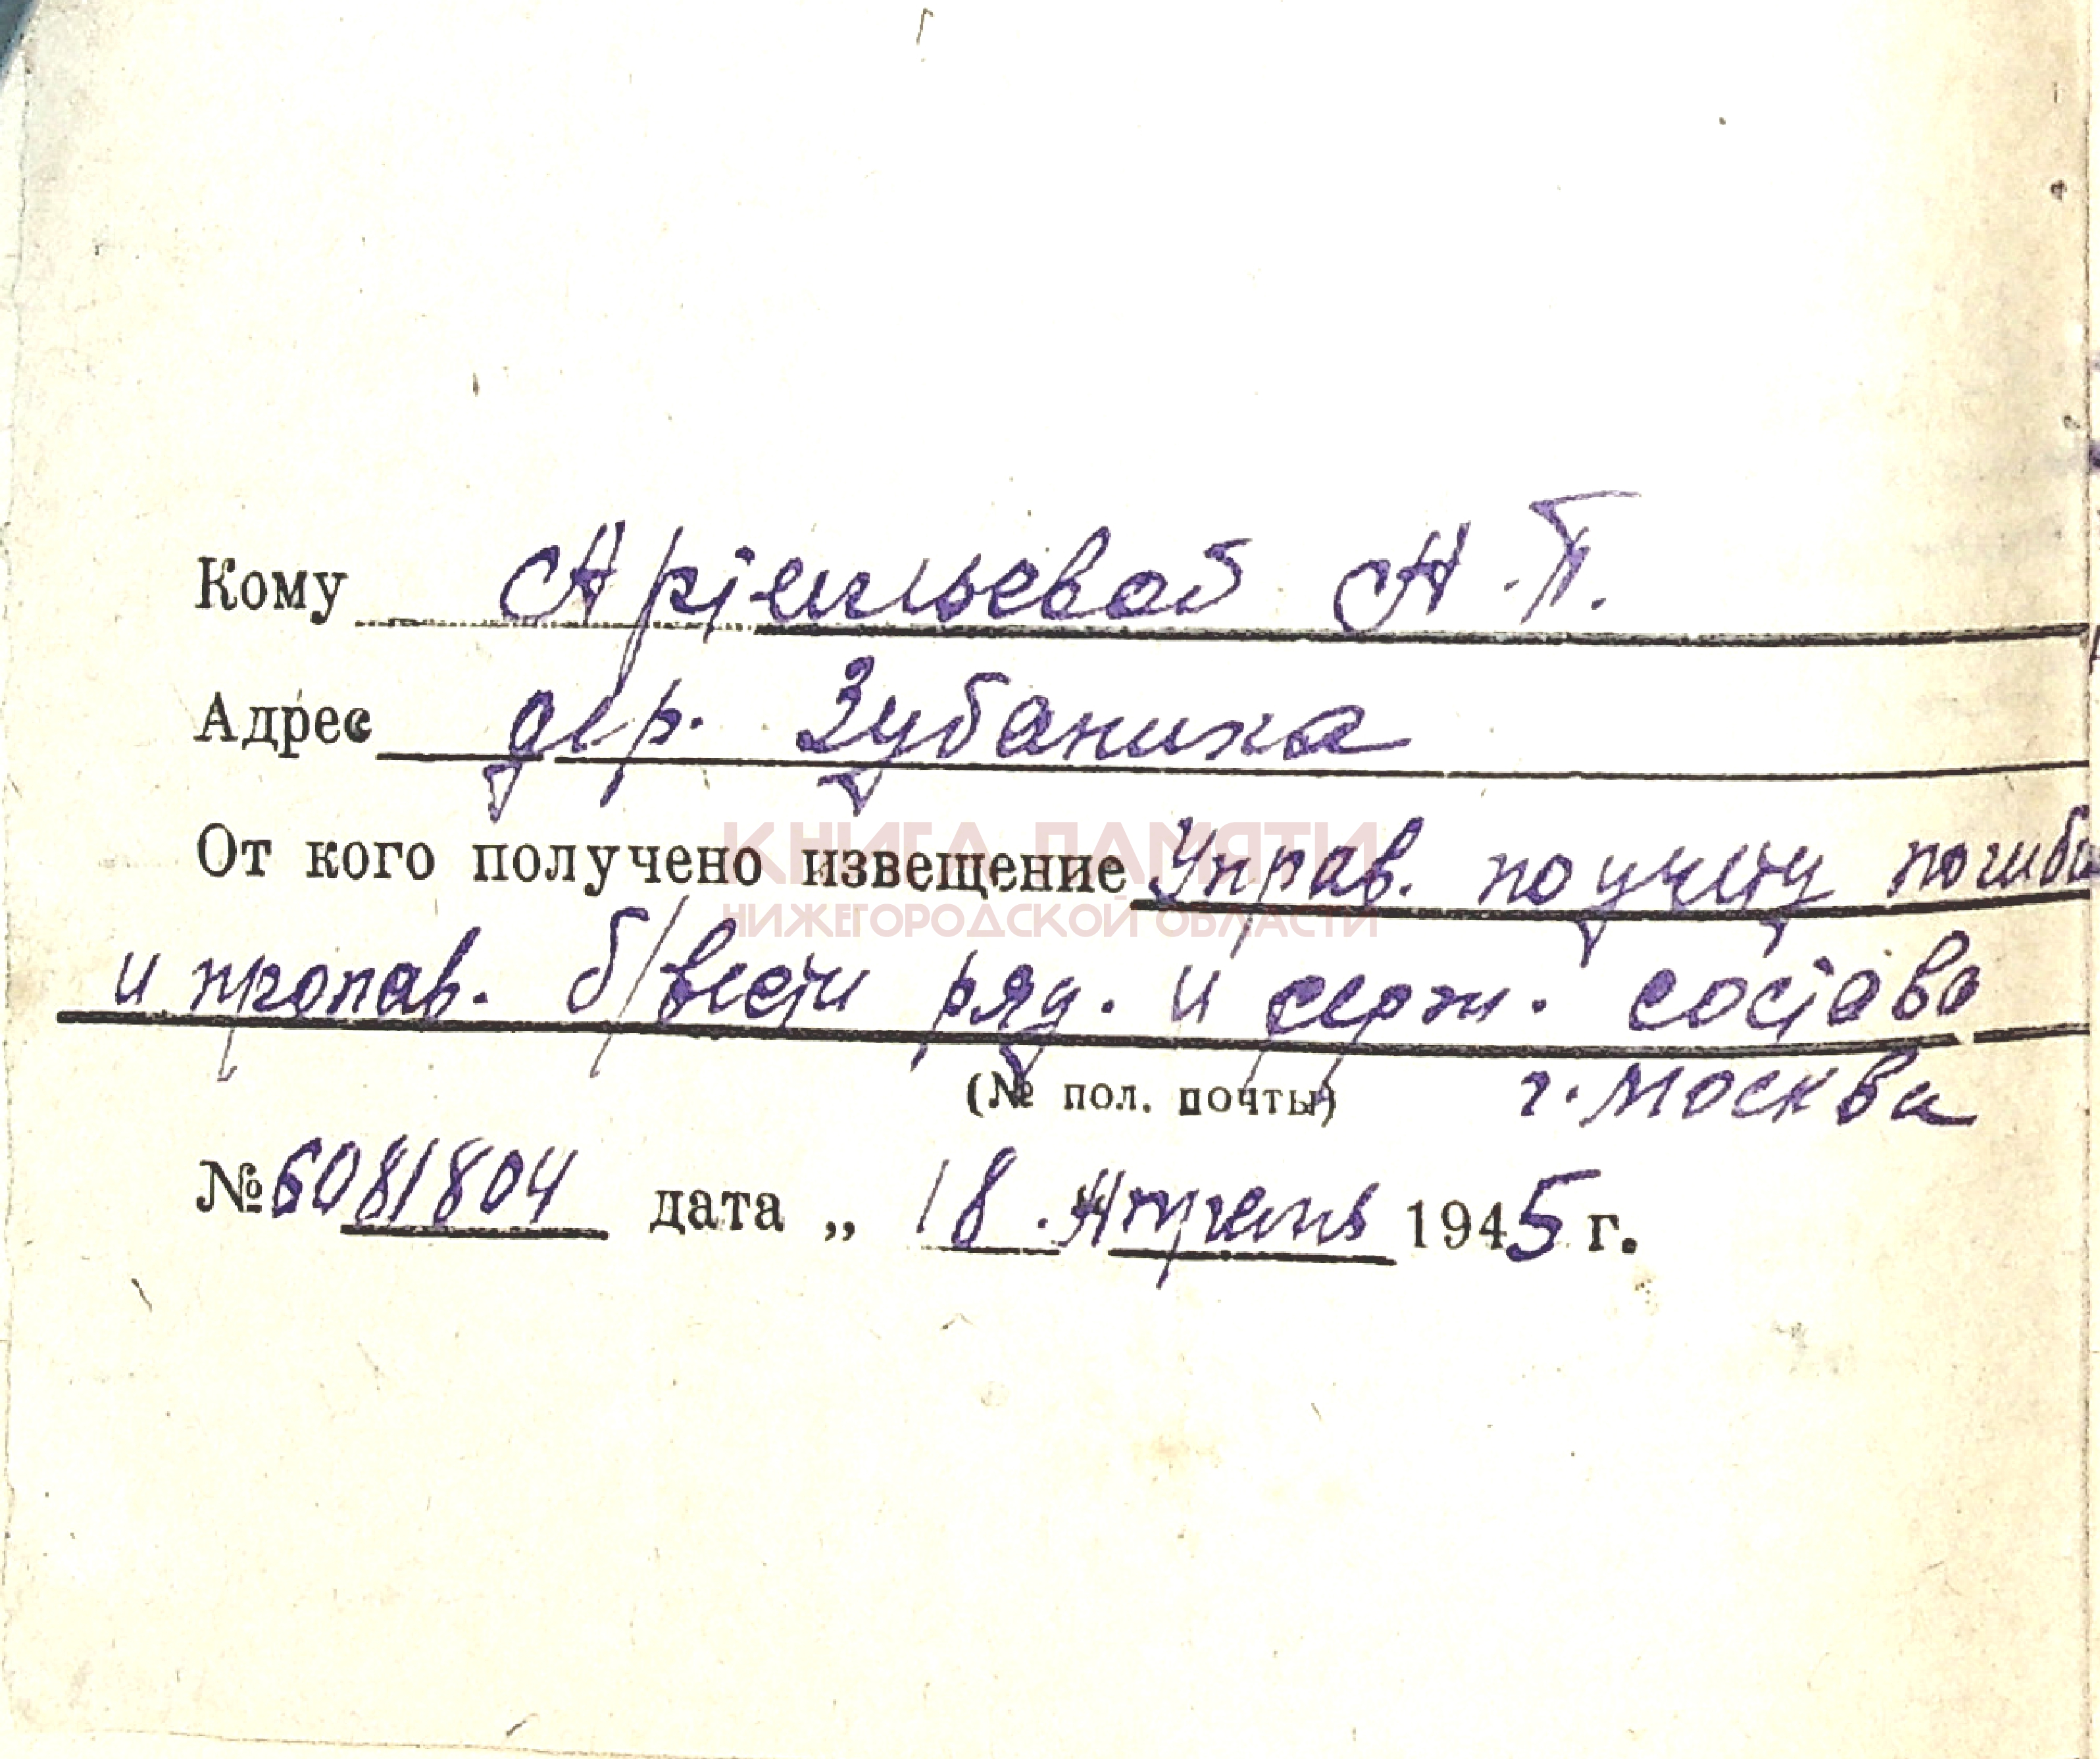 Кому Артемьевой А.П.
Адрес дер. Зубаниха
От кого получено извещение Управ. по учету погиб
КНИГА ПАМЯТИ
НИЖЕГОРОДСКОЙ ОБЛАСТИ
и пропав. б/вести ряд. и серж. состава
(№ пол. почты) г. Москва
№ 6081804 дата „ 18. Апрель 1945 г.